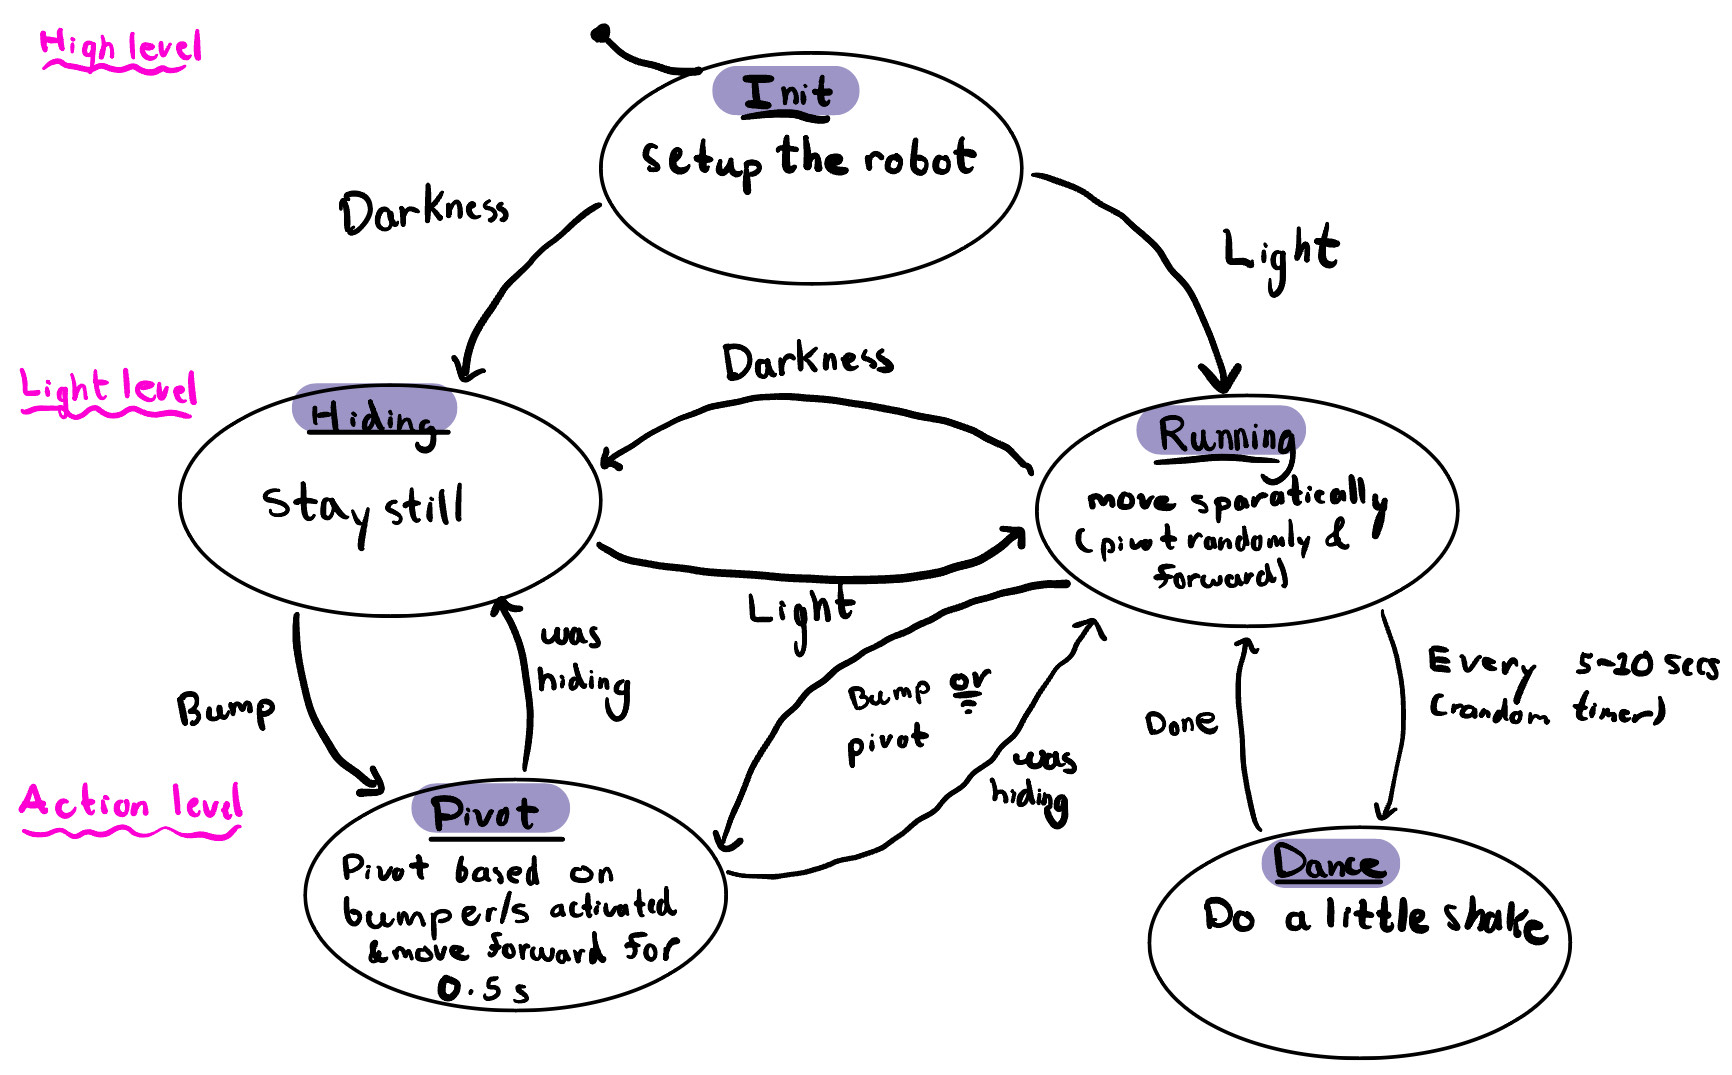 High level
Init
setup the robot
Darkness
Light
Light level
Darkness
Hiding
stay still
Running
move sparatically
(pivot randomly &
forward)
Light
was
hiding
Bump
Bump or
pivot
was
hiding
Done
Every 5-10 secs
(random timer)
Action level
Pivot
Pivot based on
bumper/s activated
& move forward for
0.5 s
Dance
Do a little shake